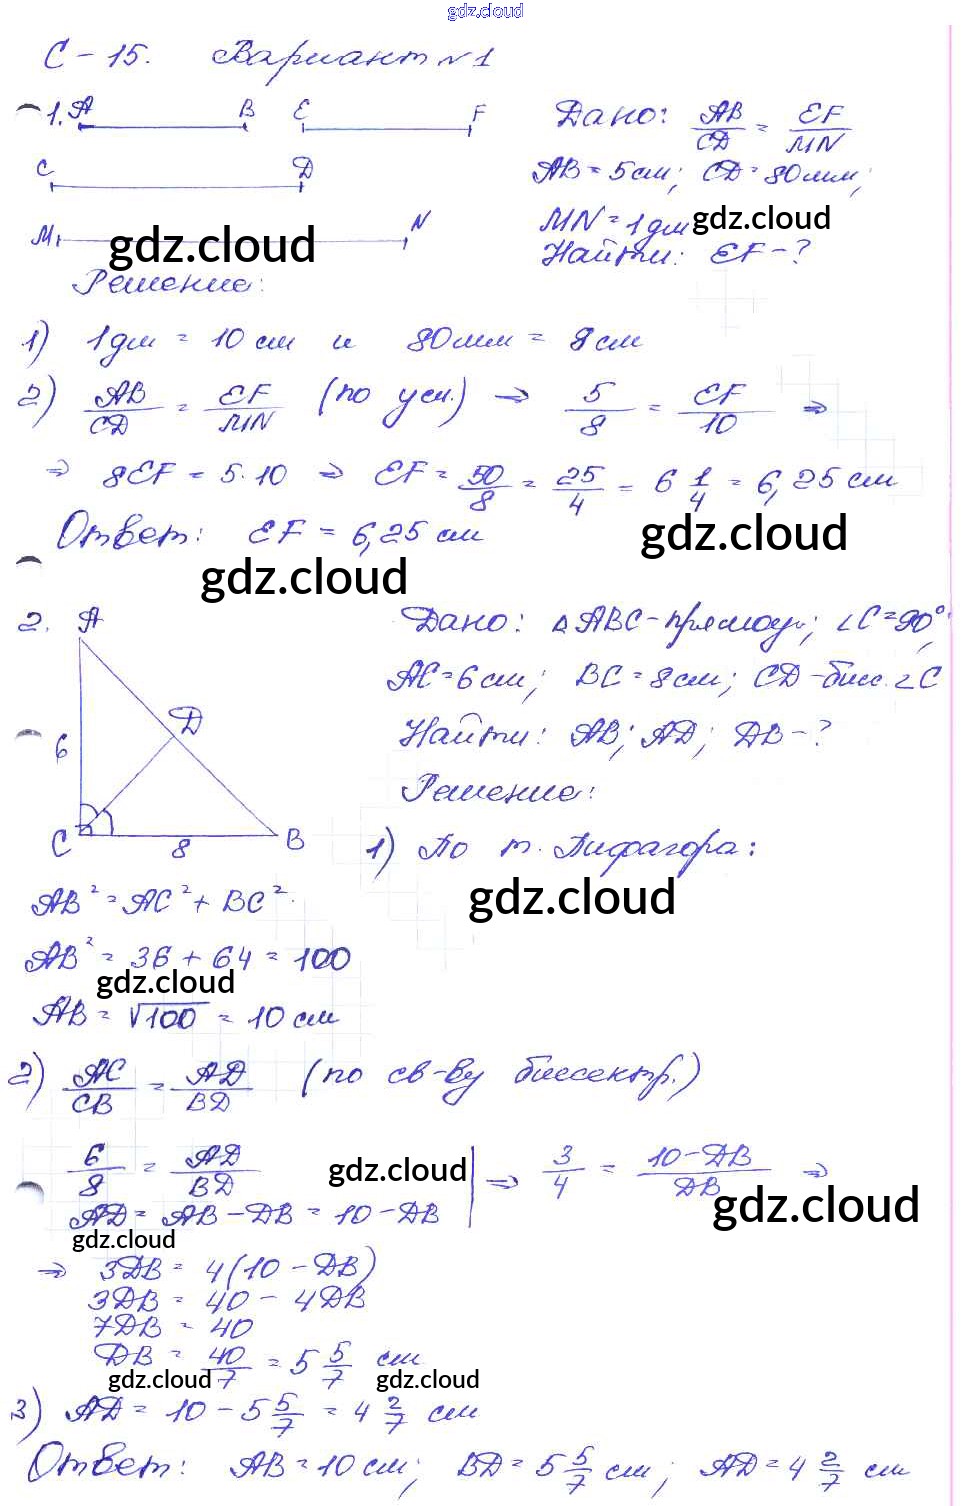 gdz.cloud
С-15. Вариант №1
1. A B E F
C D
M N
Дано: AB/CD = EF/MN
AB = 5см; CD = 80мм;
MN = 1дм gdz.cloud
Найти: EF - ?
gdz.cloud
Решение:
1) 1дм = 10 см и 80мм = 8см
2) AB/CD = EF/MN (по усл.) ⇒ 5/8 = EF/10 ⇒
⇒ 8EF = 5·10 ⇒ EF = 50/8 = 25/4 = 6 1/4 = 6,25 см
Ответ: EF = 6,25 см gdz.cloud
gdz.cloud
2. A D C B 6 8
Дано: △ABC - прямоуг.; ∠C=90°;
AC=6см; BC=8см; CD-бисс.∠C
Найти: AB; AD; DB-?
Решение:
1) По т. Пифагора:
gdz.cloud
AB² = AC² + BC².
AB² = 36 + 64 = 100
gdz.cloud
AB = √100 = 10 см
2) AC/CB = AD/BD (по св-ву биссектр.)
6/8 = AD/BD gdz.cloud ⇒ 3/4 = 10-DB/DB ⇒
gdz.cloud
AD = AB - DB = 10 - DB
gdz.cloud
⇒ 3DB = 4(10 - DB)
3DB = 40 - 4DB
7DB = 40
DB = 40/7 = 5 5/7 см
gdz.cloud gdz.cloud
3) AD = 10 - 5 5/7 = 4 2/7 см
Ответ: AB = 10 см; BD = 5 5/7 см; AD = 4 2/7 см